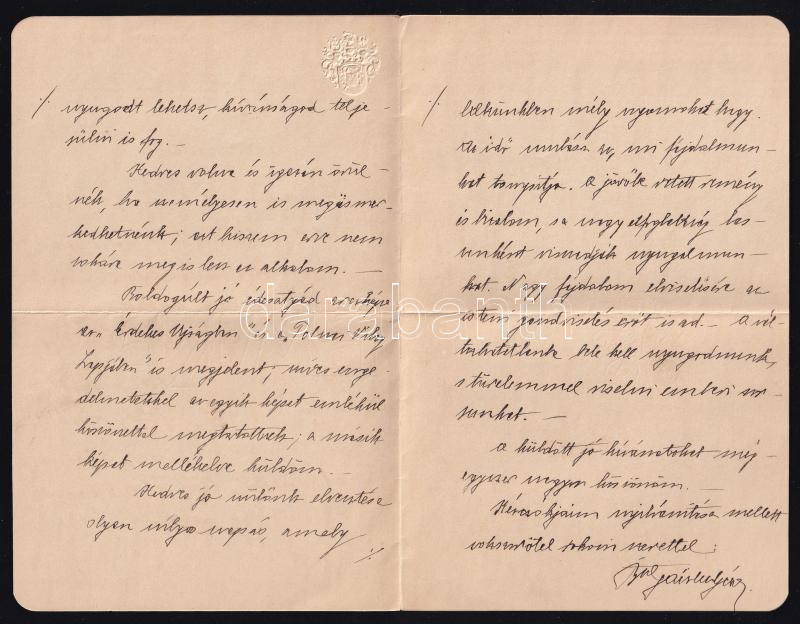 ./. nyugodt lehetsz, kívánságod telje-
sülni is fog. –
Kedves volna és igazán örül-
nék, ha személyesen is megismer-
kedhetnénk; azt hiszem erre nem
sokára meg is lesz az alkalom. –
Boldogult jó édesatyád arczképe
az „Érdekes Ujságban” és a Tolnai Világ
Lapjában” is megjelent; szíves enge-
delmetekkel az egyik képet emlékül
köszönettel megtartottuk; a másik
képet mellékelve küldöm. –
Kedves jó szülőnk elvesztése
olyan súlyos csapás, amely
./.
./. lelkünkben mély nyomokat hagy.
Az idő mulása az, mi fájdalmun-
kat tompítja. A jövőbe vetett remény
és bizalom, s a nagy elfoglaltság las-
sanként visszaadják nyugalmun-
kat. Nagy fájdalom elviselésére az
isteni gondviselés erőt is ad. – A vál-
tozhatatlanba bele kell nyugodnunk,
s türelemmel viselni emberi sor-
sunkat. –
A küldött jó kívánatokat még-
egyszer nagyon köszönöm. –
Kézcsókjaim nyilvánítása mellett
sokszor ölel rokoni szeretettel:
darabanth